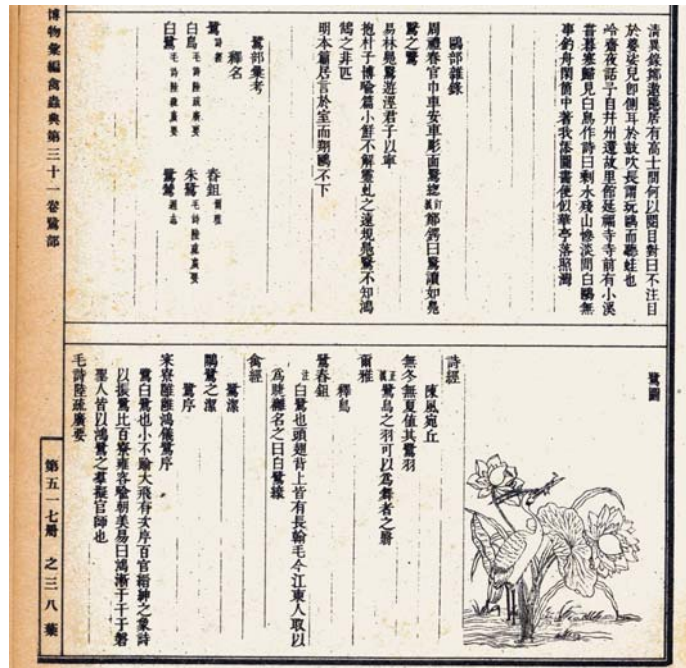 清異錄鄭遨隱居有高士問何以閱目對曰不注目
於婆娑兒即側耳於鼓吹長謂玩鷗而聽蛙也
冷齋夜話予自幷州還故里館延福寺寺前有小溪
嘗暮寒歸見白鳥作詩曰剩水殘山慘淡間白鷗無
事釣舟閑箇中著我添圖畫便似華亭落照灣
鷗部雜錄
周禮春官巾車安車彫面鷖總
鷖之鷖
易林鳧鷖遊涇君子以寧
抱朴子博喻篇小鮮不解靈虬之遠規鳧鷖不知鴻
鵠之非匹
明本篇居言於室而翔鷗不下
鷺部彙考
釋名
鷺詩經
舂鉏爾雅
白鳥毛詩陸疏廣要
朱鷺毛詩陸疏廣要
白鷺毛詩陸疏廣要
鷺圖
詩經
陳風宛丘
無冬無夏值其鷺羽
鷺鳥之羽可以為舞者之翳
爾雅
釋鳥
鷺舂鉏
註白鷺也頭翅背上皆有長翰毛今江東人取以
為睫攡名之曰白鷺縗
禽經
鷺潔
鷳鷺之潔
鷺序
寀寮雝雝鴻儀鷺序
鷺白鷺也小不踰大飛有次序百官縉紳之象詩
以振鷺比百寮雍容喻朝美易曰鴻漸于干于磐
聖人皆以鴻鷺之羣擬官師也
毛詩陸疏廣要
博物彙編禽蟲典第三十一卷鷺部
第五一七册 之三八葉